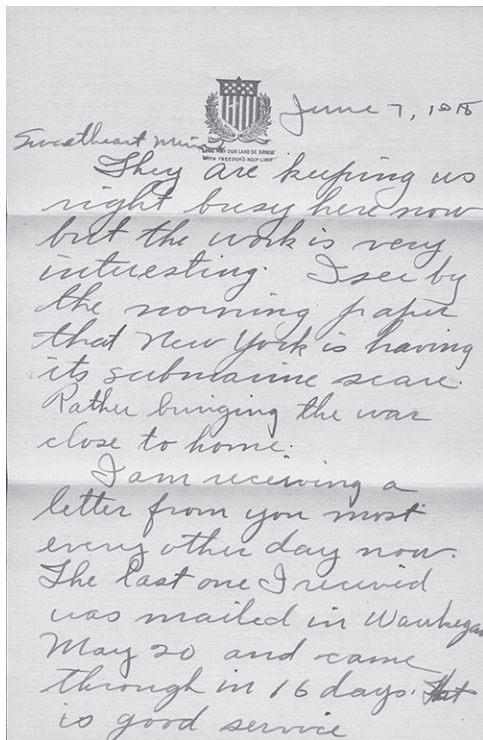 June 7, 1918
LONG MAY OUR LAND BE BRIGHT
WITH FREEDOM'S HOLY LIGHT
Sweetheart Mine
They are keeping us
right busy here now
but the work is very
interesting. I see by
the morning paper
that New York is having
its submarine scare.
Rather bringing the war
close to home.
I am receiving a
letter from you most
every other day now.
The last one I received
was mailed in Waukegan
May 20 and came
through in 16 days. That
is good service